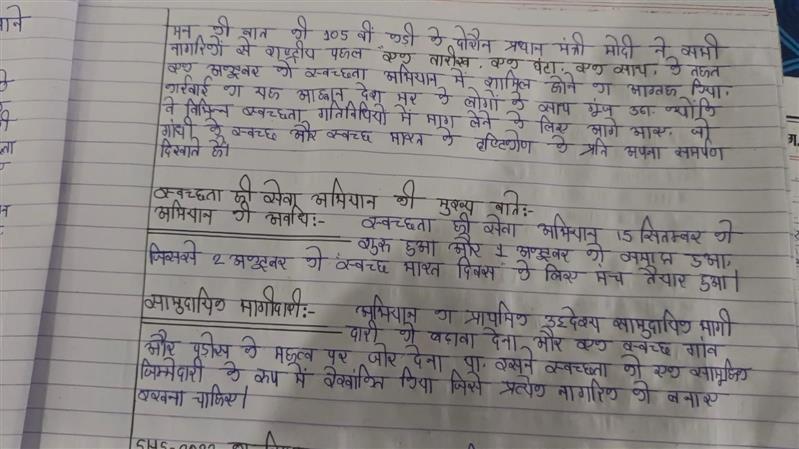 मन की बात की 105 वी कडी के दौरान प्रधान मंत्री मोदी ने सभी
नागरिकों से राष्ट्रीय पहल एक तारीख, एक घंटा, एक साथ, के तहत
एक अक्टूबर को स्वच्छता अभियान में शामिल होने का आग्रह किया.
कार्रवाई का यह आव्हान देश भर के लोगों के साथ गूंज उठा क्योंकि
वे विभिन्न स्वच्छता गतिविधियो में भाग लेने के लिए आगे आए. जो
गांधी के स्वच्छ और स्वच्छ भारत के दृष्टिकोण के प्रति अपना समर्पण
दिखाते है।
स्वच्छता ही सेवा अभियान की मुख्य बाते:-
अभियान की अवधि:- स्वच्छता ही सेवा अभियान 15 सितम्बर को
शुरू हुआ और 1 अक्टूबर को समाप्त हुआ,
जिससे 2 अक्टूबर को स्वच्छ भारत दिवस के लिए मंच तैयार हुआ।
सामुदायिक भागीदारी:- अभियान का प्राथमिक उद्देश्य सामुदायिक भागी
दारी को बढावा देना और एक स्वच्छ गांव
और पडोस के महत्व पर जोर देना था. इसने स्वच्छता को एक सामूहिक
जिम्मेदारी के रूप में रेखांकित किया जिसे प्रत्येक नागरिक को बनाए
रखना चाहिए।